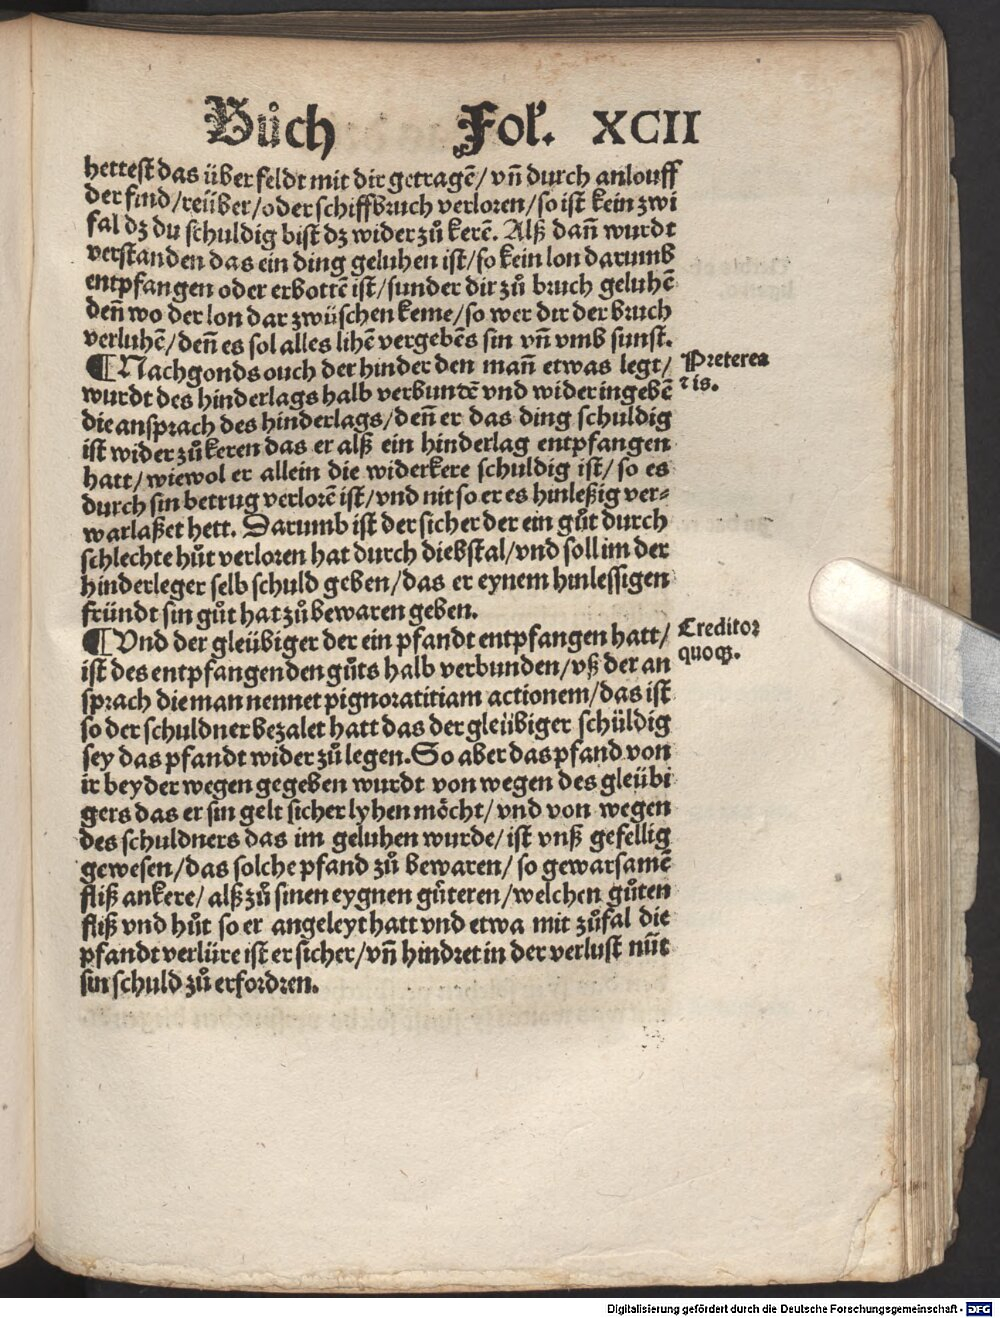 Bůch Fol. XCII
hettest das über feldt mit dir getragē/ vñ durch anlouff
der find/reüber/oder schiffbruch verloren/so ist kein zwi
fal dz du schuldig bist dz wider zů kerē. Alß dañ wurdt
verstanden das ein ding geluhen ist/so kein lon darumb
entpfangen oder erbottē ist/sunder dir zů bruch geluhē
deñ wo der lon dar zwüschen keme/so wer dir der bruch
verluhē/deñ es sol alles lihē vergebēs sin vñ vmb sunst.
¶Nachgonds ouch der hinder den mañ etwas legt/
wurdt des hinderlags halb verbundē vnd wider ingebē
die ansprach des hinderlags/deñ er das ding schuldig
ist wider zů keren das er alß ein hinderlag entpfangen
hatt/wiewol er allein die widerkere schuldig ist/so es
durch sin betrug verlorē ist/vnd nit so er es hinleßig ver⸗
warlaßet hett. Darumb ist der sicher der ein gůt durch
schlechte hůt verloren hat durch diebstal/vnd soll im der
hinderleger selb schuld geben/das er eynem hinlessigen
fründt sin gůt hat zů bewaren geben.
¶Vnd der gleübiger der ein pfandt entpfangen hatt/
ist des entpfangenden gůts halb verbunden/vß der an
sprach die man nennet pignoratitiam actionem/das ist
so der schuldner bezalet hatt das der gleübiger schüldig
sey das pfandt wider zů legen. So aber das pfand von
ir beyder wegen gegeben wurdt von wegen des gleübi
gers das er sin gelt sicher lyhen möcht/vnd von wegen
des schuldners das im geluhen wurde/ist vnß gefellig
gewesen/das solche pfand zů bewaren/so gewarsamē
fliß ankere/alß zů sinen eygnen gůteren/welchen gůten
fliß vnd hůt so er angeleyt hatt vnd etwa mit zůfal die
pfandt verlüre ist er sicher/vñ hindret in der verlust nüt
sin schuld zů erfordren.
Preterea
⁊ is.
Creditor
quoqꝫ.
Digitalisierung gefördert durch die Deutsche Forschungsgemeinschaft - DFG